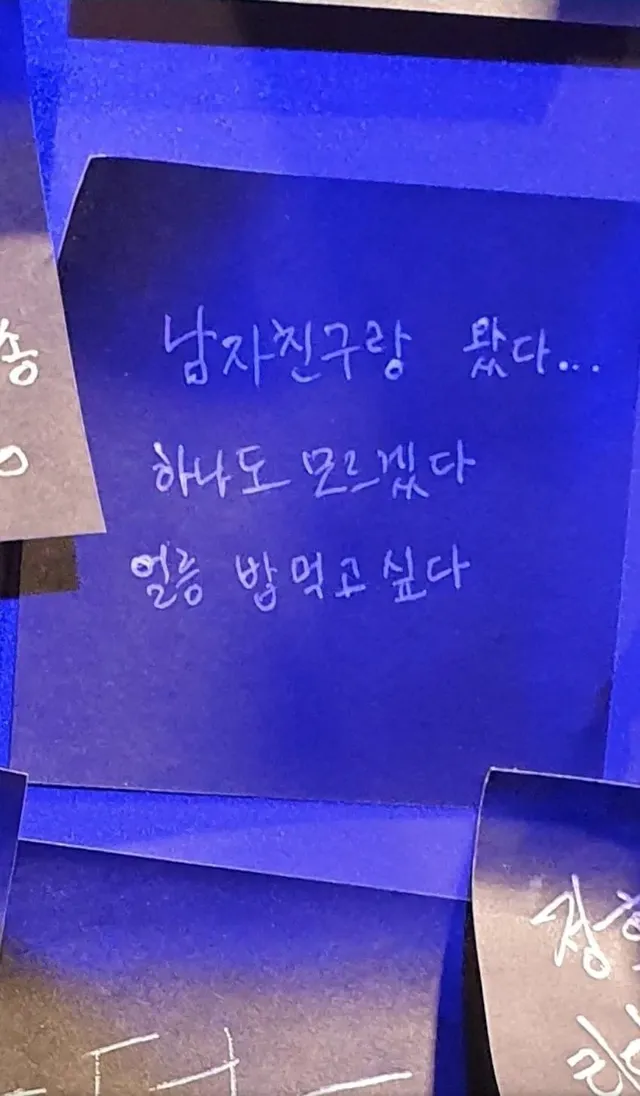 송
남자친구랑 왔다...
하나도 모르겠다
얼릉 밥먹고싶다